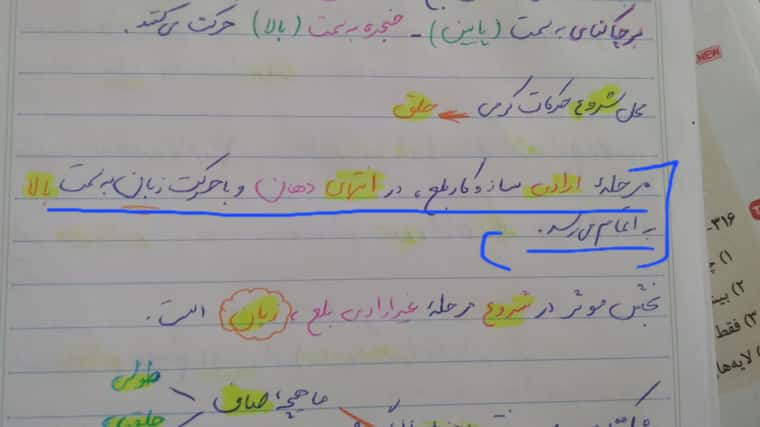 برچاکنای به سمت (پایین) - حنجره به سمت (بالا) حرکت می‌کند.
محل شروع حرکات کرمی ← حلق
مرحلهٔ ارادی ساز و کار بلع، در انتهای دهان و با حرکت زبان به سمت بالا
به اتمام می‌رسد.
بخش موثر در شروع مرحلهٔ غیرارادی بلع، زبان است.
طولی
ماهیچهٔ صاف
حلقوی
NEW
۳۱۶-
۱)
۲)
۳) فقط
لایه‌ها